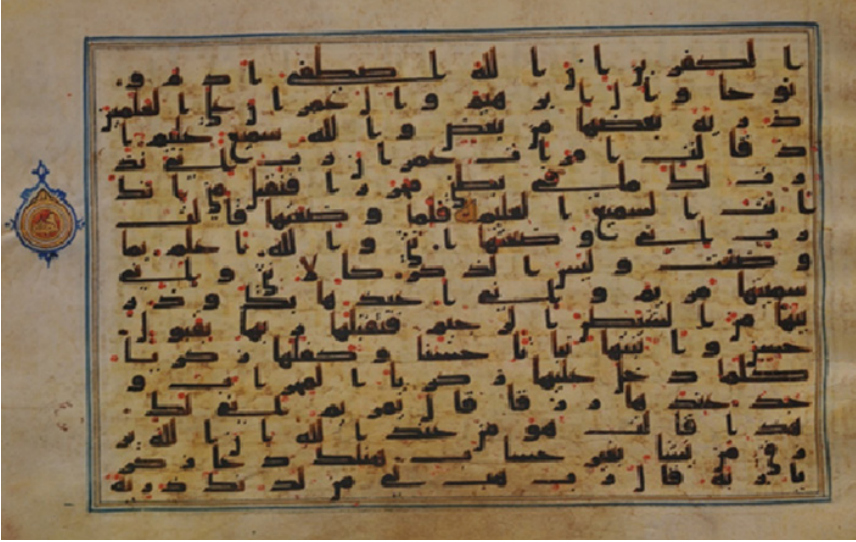 الكفرين ان الله اصطفى ادم و
نوحا وال ابرهيم وال عمرن على العلمين
ذرية بعضها من بعض والله سميع عليم ا
ذ قالت امرات عمرن رب اني نذ
رت لك ما في بطني محررا فتقبل مني انك
انت السميع العليم فلما وضعتها قالت
رب اني وضعتها انثى والله اعلم بما
وضعت وليس الذكر كالانثى واني
سميتها مريم واني اعيذها بك وذر
يتها من الشيطن الرجيم فتقبلها ربها بقبول
حسن وانبتها نباتا حسنا وكفلها زكريا
كلما دخل عليها زكريا المحراب و
جد عندها رزقا قال يمريم انى لك
هذا قالت هو من عند الله ان الله ير
زق من يشا بغير حساب هنلك دعا زكر
يا ربه قال رب هب لي من لدنك ذرية